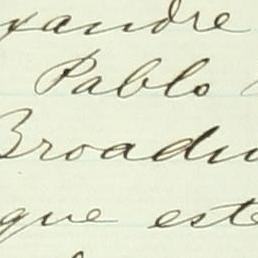 xandre
Pablo
Broadw
que este